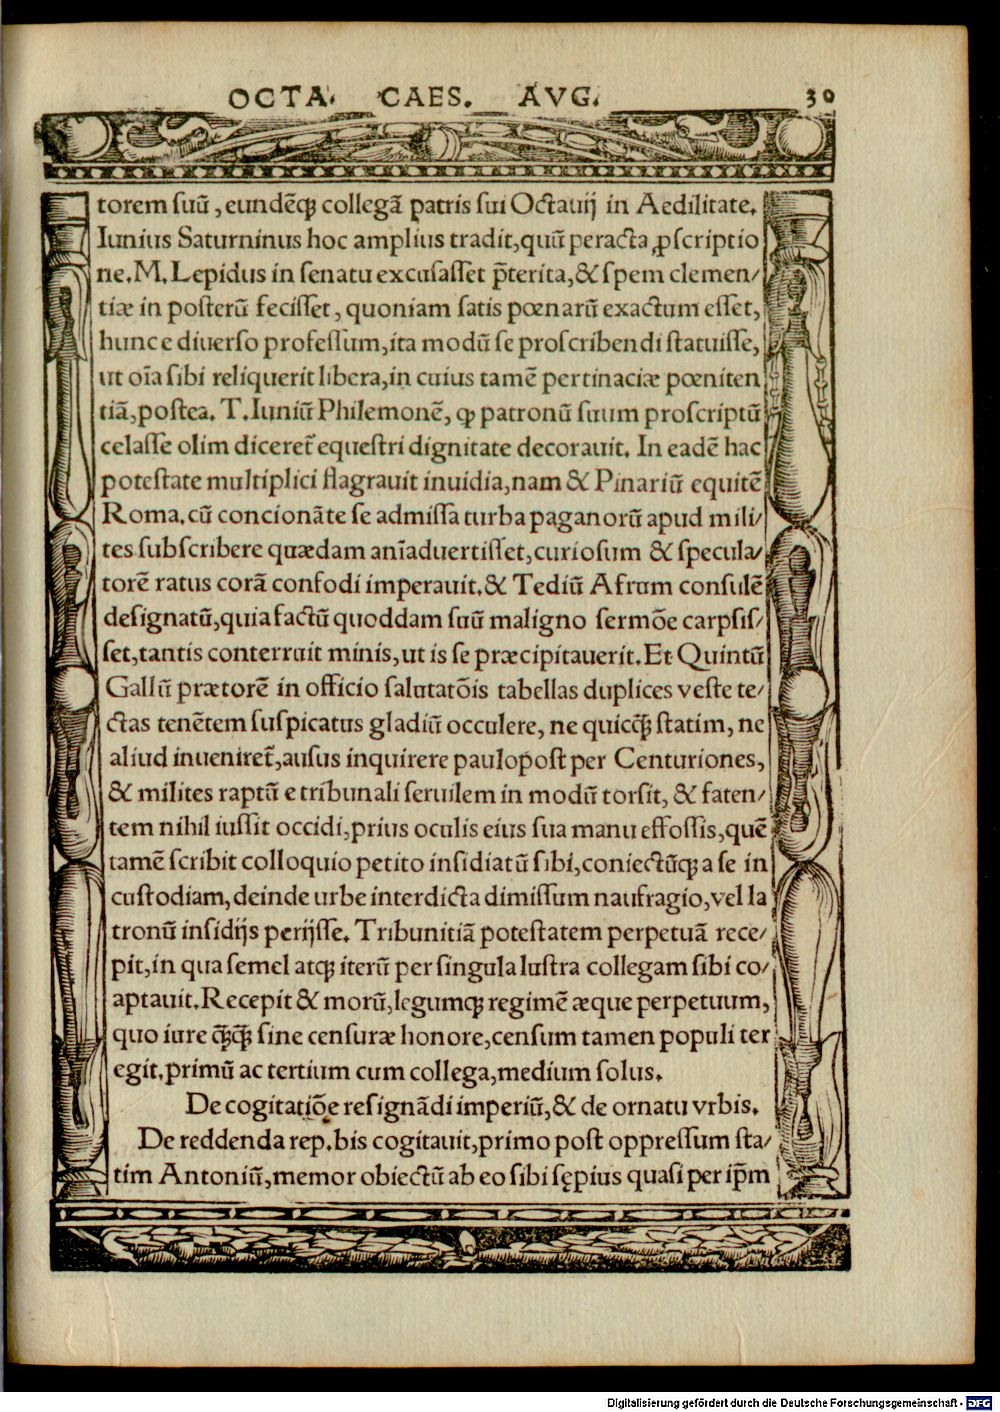 OCTA. CAES. AVG. 30
torem ſuũ, eundẽqꝫ collegã patris ſui Octauij in Aedilitate.
Iunius Saturninus hoc amplius tradit, quũ peracta ꝓſcriptio
ne. M. Lepidus in ſenatu excuſaſſet p̃terita, & ſpem clemen/
tiæ in poſterũ feciſſet, quoniam ſatis pœnarũ exactum eſſet,
hunc e diuerſo profeſſum, ita modũ ſe proſcribendi ſtatuiſſe,
ut oĩa ſibi reliquerit libera, in cuius tamẽ pertinaciæ pœniten
tiã, poſtea. T. Iuniũ Philemonẽ, ꝙ patronũ ſuum proſcriptũ
celaſſe olim diceret̃ equeſtri dignitate decorauit. In eadẽ hac
poteſtate multiplici flagrauit inuidia, nam & Pinariũ equitẽ
Roma. cũ concionãte ſe admiſſa turba paganorũ apud mili/
tes ſubſcribere quædam anĩaduertiſſet, curioſum & ſpecula/
torẽ ratus corã confodi imperauit. & Tediũ Afrum conſulẽ
deſignatũ, quia factũ quoddam ſuũ maligno ſermõe carpſiſ/
ſet, tantis conterruit minis, ut is ſe præcipitauerit. Et Quintũ
Gallũ prætorẽ in officio ſalutatõis tabellas duplices veſte te/
ctas tenẽtem ſuſpicatus gladiũ occulere, ne quicq̃ꝫ ſtatim, ne
aliud inueniret̃, auſus inquirere paulopoſt per Centuriones,
& milites raptũ e tribunali ſeruilem in modũ torſit, & faten/
tem nihil iuſſit occidi, prius oculis eius ſua manu effoſſis, quẽ
tamẽ ſcribit colloquio petito inſidiatũ ſibi, coniectũqꝫ a ſe in
cuſtodiam, deinde urbe interdicta dimiſſum naufragio, vel la
tronũ inſidijs perijſſe. Tribunitiã poteſtatem perpetuã rece/
pit, in qua ſemel atqꝫ iterũ per ſingula luſtra collegam ſibi co/
aptauit. Recepit & morũ, legumqꝫ regimẽ æque perpetuum,
quo iure q̃ꝫq̃ꝫ ſine cenſuræ honore, cenſum tamen populi ter
egit. primũ ac tertium cum collega, medium ſolus.
De cogitatiõe reſignãdi imperiũ, & de ornatu vrbis.
De reddenda rep. bis cogitauit, primo poſt oppreſſum ſta/
tim Antoniũ, memor obiectũ ab eo ſibi ſępius quaſi per ip̃m
Digitalisierung gefördert durch die Deutsche Forschungsgemeinschaft - DFG